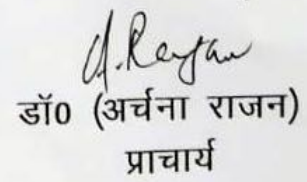 A. Rajan
डॉ0 (अर्चना राजन)
प्राचार्य